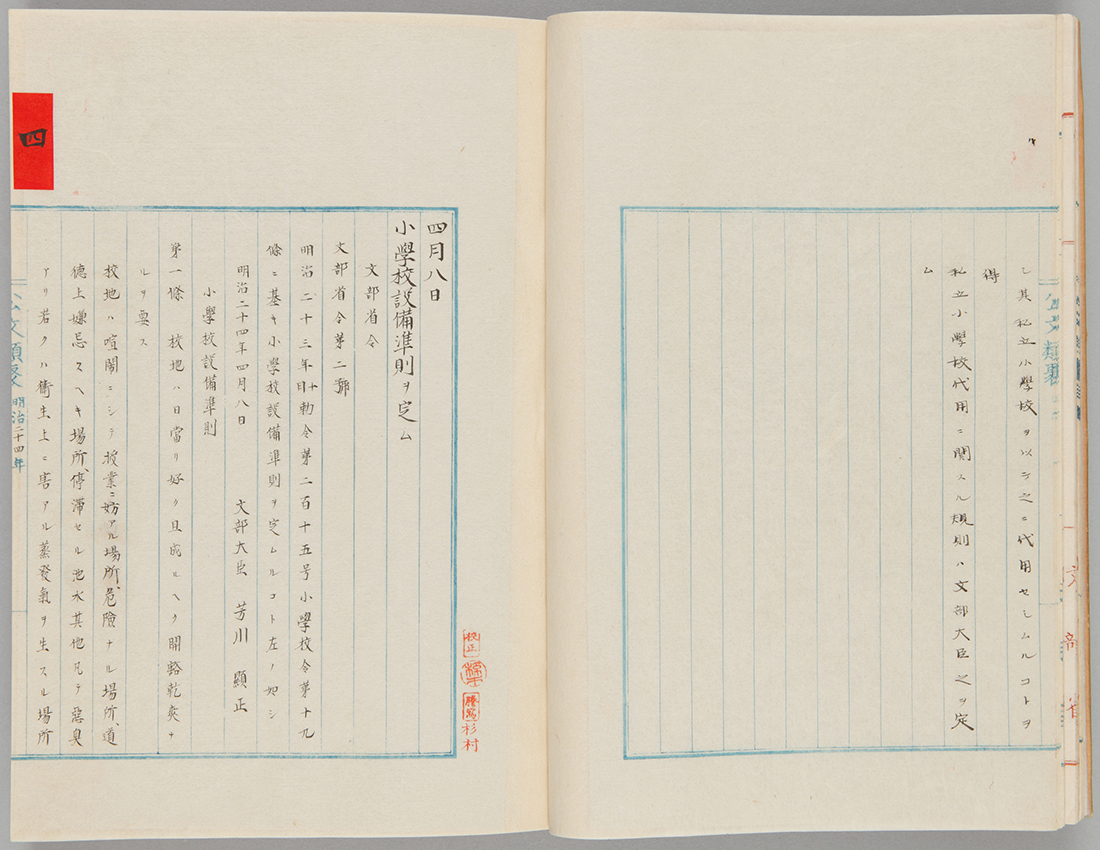 シ其私立小學校ヲ以テ之ニ代用セシムルコトヲ
得
私立小學校代用ニ關スル規則ハ文部大臣之ヲ定
ム
公文類聚
文部省
四
校正
謄寫
杉村
四月八日
小學校設備準則ヲ定ム
文部省令
文部省令第二號
明治二十三年十月勅令第二百十五号小學校令第十九
條ニ基キ小學校設備準則ヲ定ムルコト左ノ如シ
明治二十四年四月八日 文部大臣 芳川顯正
小學校設備準則
第一條 校地ハ日當リ好ク且成ルヘク開豁乾爽ナ
ルヲ要ス
校地ハ喧閙ニシテ授業ニ妨アル場所、危險ナル場所、道
德上嫌忌スヘキ場所、停滯セル池水其他凡テ惡臭
アリ若クハ衛生上ニ害アル蒸發氣ヲ生スル場所
公文類聚 明治二十四年